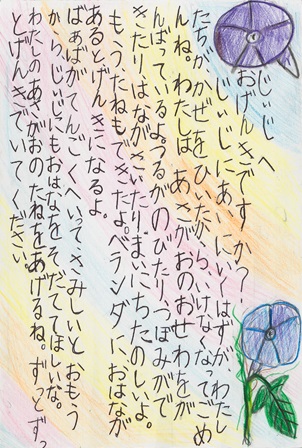 じぃじへ
おげんきですか？
じぃじにあいにいくはずが、わたし
たちが、かぜをひいたからいけなくなってごめ
んね。わたしは、あさがおのおせわをが
んばっているよ。つるがのびたり、つぼみがで
きたりはながさいたりまいにちたのしいよ。
もう、たねもできたよ。ベランダにおはなが
あるとげんきになるよ。
ばぁばがてんごくへいってさみしいとおもう
から、じぃじにもおはなをそだててほしいな。
わたしのあさがおのたねをあげるね。ずっとずっ
とげんきでいてください。